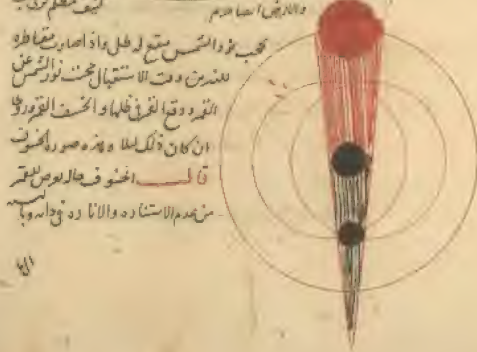 كثيف مظلم
والارض ايضا جرم
تحجب نور الشمس فيقع له ظل واذا صارت مقاطرة
للنيرين وقت الاستقبال حجبت نور الشمس عن
القمر ووقع القمر فى ظلها وانخسف القمر ورؤى
ان كان ذلك ليلا وهذه صورة الخسوف
قال الخسوف حالة يعرض للقمر
من عدم الاستنارة والانارة فى ذاته